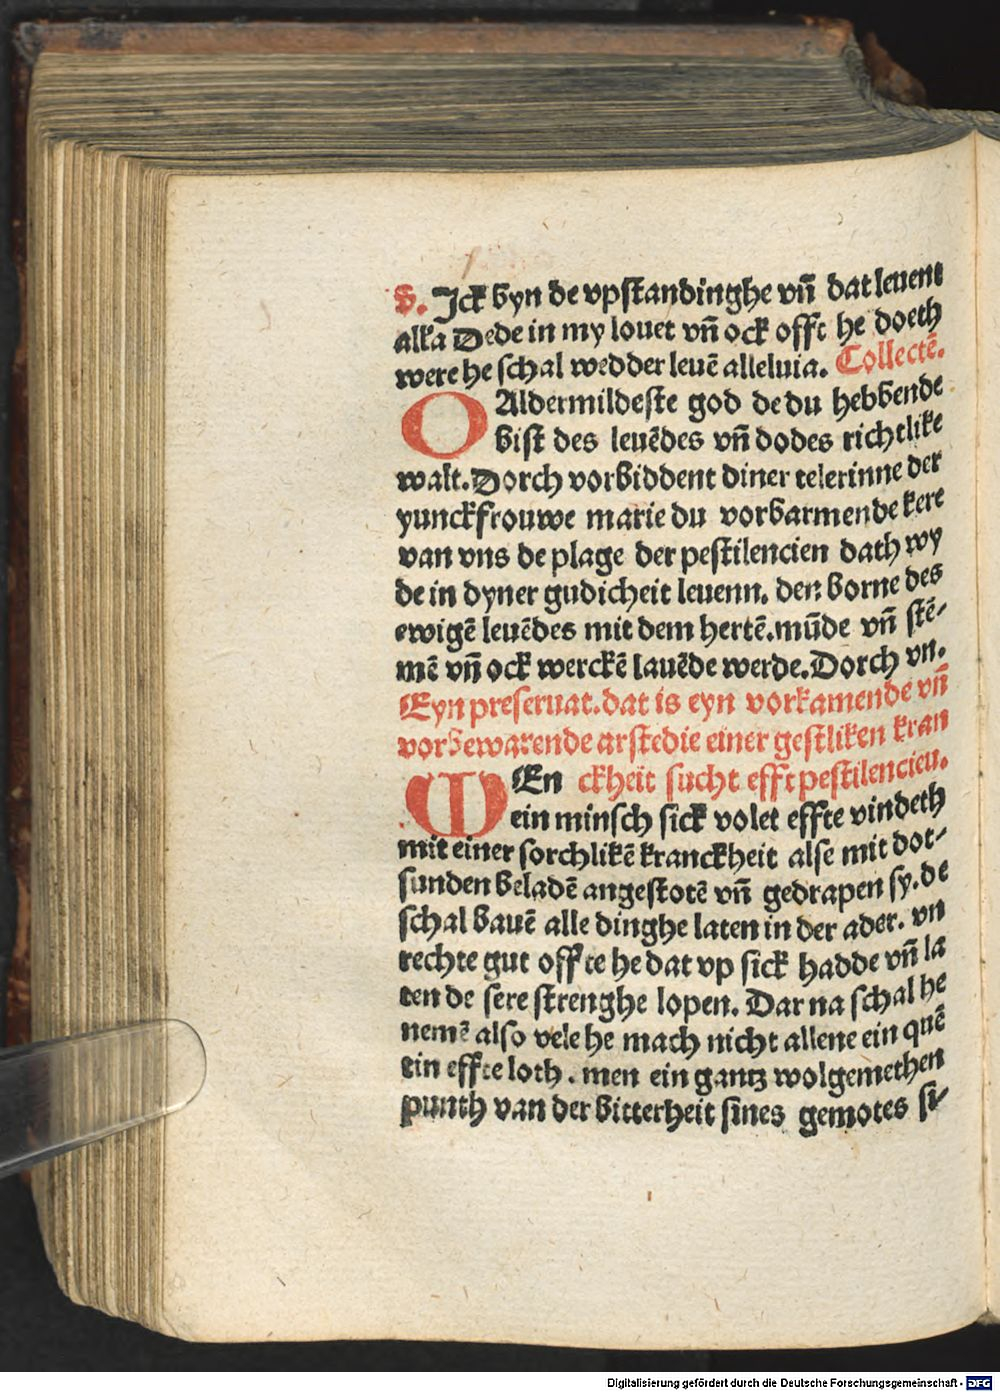 v. Jck byn de vpstandinghe vn̄ dat leuent
alka Dede in my louet vn̄ ock offt he doeth
were he schal wedder leuē alleluia. Collectē.
O Aldermildeste god de du hebbende
bist des leuēdes vn̄ dodes richtlike
walt. Dorch vorbiddent diner telerinne der
yunckfrouwe marie du vorbarmende kere
van vns de plage der pestilencien dath wy
de in dyner gudicheit leuenn. den borne des
ewigē leuēdes mit dem hertē. mūde vn̄ stē-
mē vn̄ ock werckē lauēde werde. Dorch vn.
Eyn preseruat. dat is eyn vorkamende vn̄
vorbewarende arstedie einer gestliken kran
WEn ckheit sucht efft pestilencien.
ein minsch sick volet effte vindeth
mit einer sorchlikē kranckheit alse mit dot-
sunden beladē angestotē vn̄ gedrapen sy. de
schal bauē alle dinghe laten in der ader. vn
rechte gut offte he dat vp sick hadde vn̄ la
ten de sere strenghe lopen. Dar na schal he
nemē also vele he mach nicht allene ein quē
tin effte loth. men ein gantz wolgemethen
punth van der bitterheit sines gemotes si-
Digitalisierung gefördert durch die Deutsche Forschungsgemeinschaft - DFG